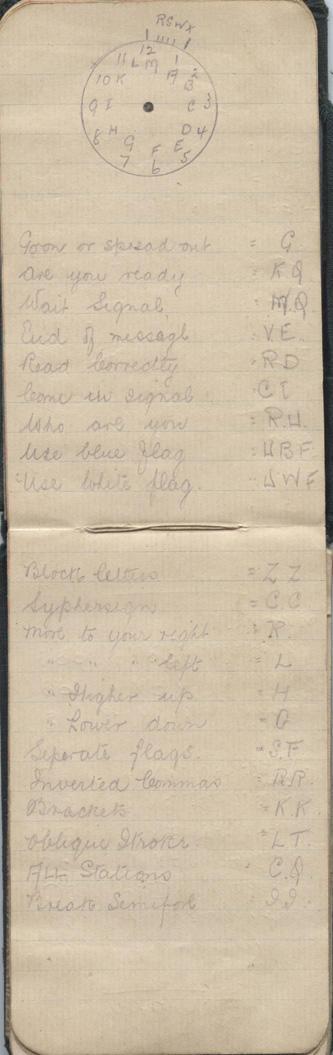 RSWX
12
11 L M 1
10 K A 2
B
9 I C 3
8 H D 4
G F E
7 6 5
Goon or spread out = G.
Are you ready = K Q
Wait Signal = M.Q.
End of message = V.E.
Read Correctly = R D
Come in signal : C I
Who are you = R.U.
Use blue flag = U B F
Use White flag. = U W F
Block letters = Z Z
Syphersign = C.C
Move to your right = R.
" " " " left = L
" Higher up = H
" Lower down = O
Seperate flags. = S.F
Inverted Commas = R R.
Brackets = K K
Oblique Stroke = L T.
All Stations C.Q.
Break Semifore = I I.